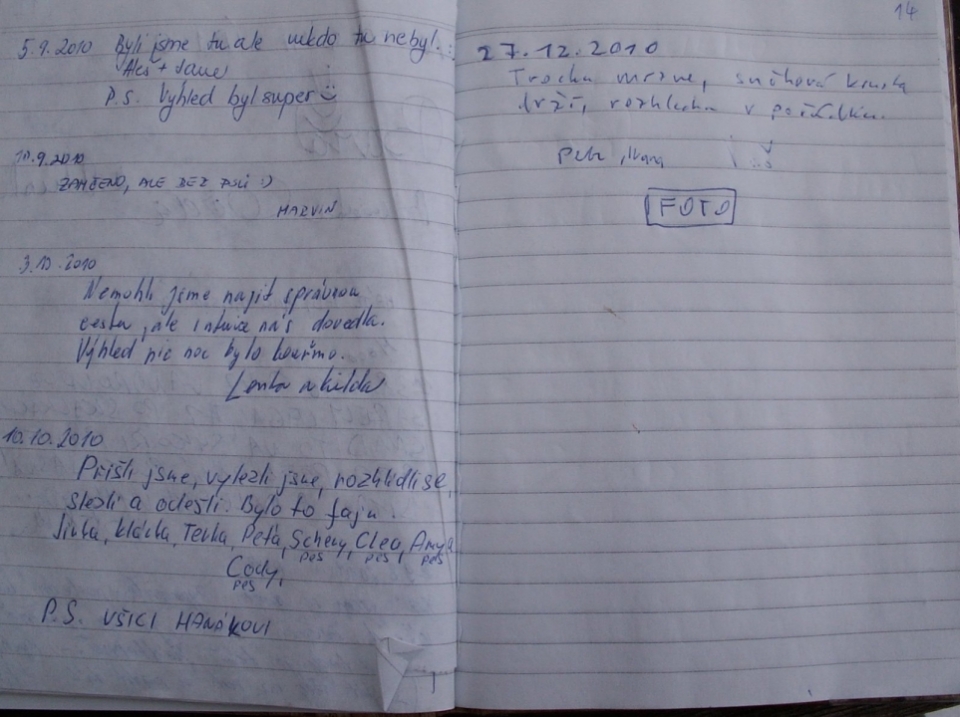 5.9.2010 Byli jsme tu ale nikdo tu nebyl.
P.S. Výhled byl super
9.2010
ZAMČENO, ALE BEZ PSŮ :)
MARVIN
3.10.2010
Nemohli jsme najít správnou
cestu, ale intuice nás dovedla.
Výhled nic moc bylo kouřmo.
Lenka
10.10.2010
Přišli jsme, vylezli jsme, rozhlídli se,
slezli a odešli. Bylo to fajn.
Jirka, Klárka, Terka, Péťa, Scheny, Clea, Amy
pes pes pes
Cody,
pes
P.S. VŠICI HANÁKOVI
14
27.12.2010
Trochu mrzne, sněhová krusta
drží, rozhledna v pořádku.
Petr,
FOTO